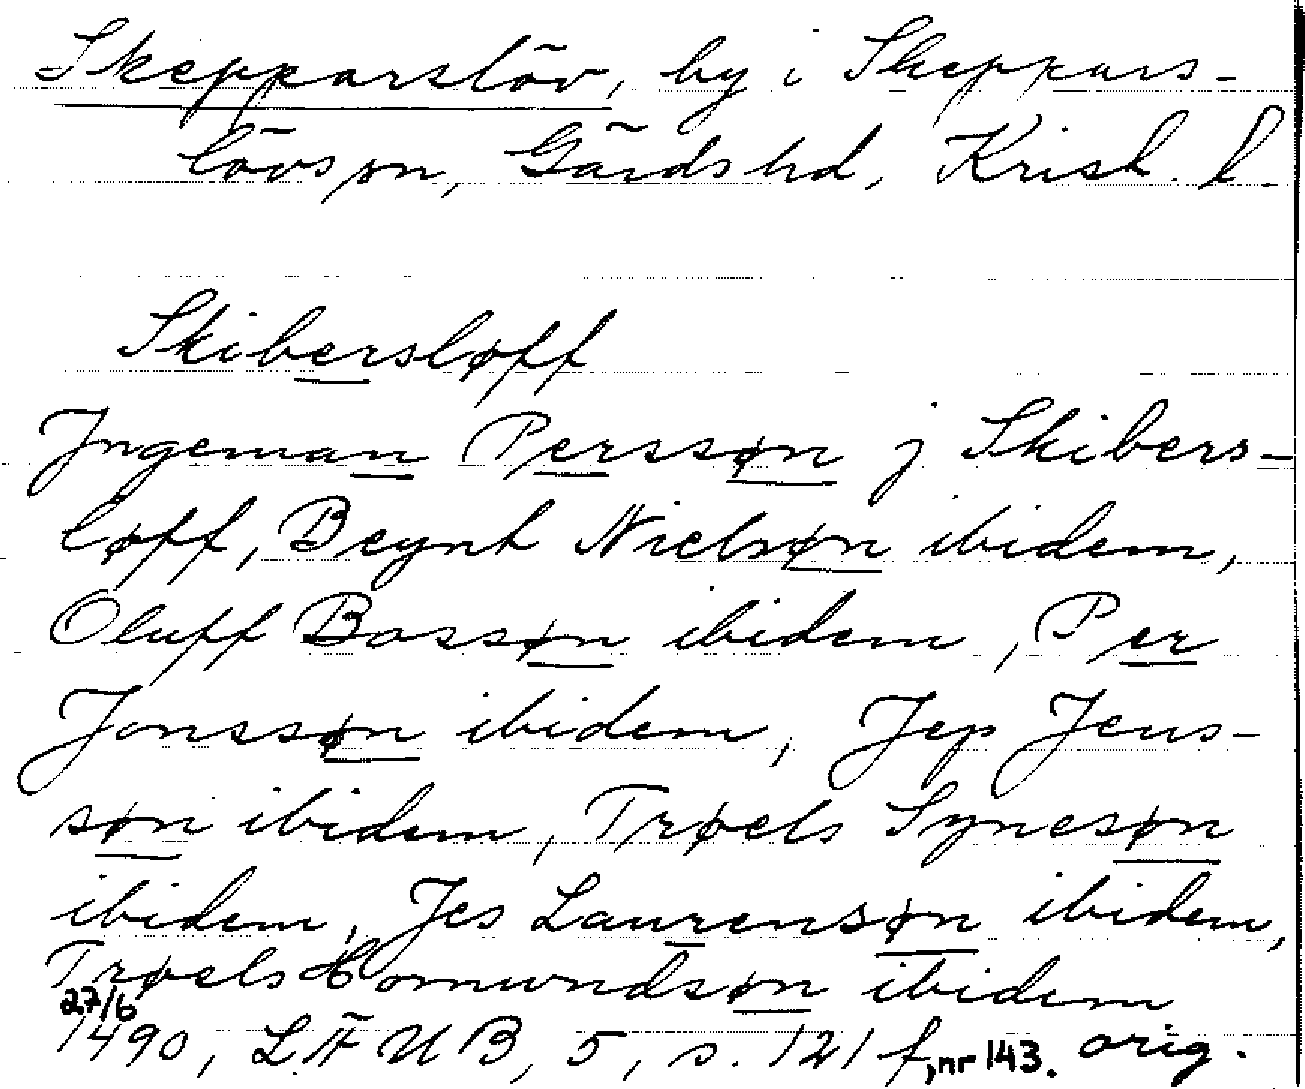 Skepparslöv, by i Skeppars-
lövs sn, Gärds hd, Krist. l.
Skibersløff
Jngeman Perssøn j Skibers-
løff, Beynt Nielsøn ibidem,
Oluff Bossøn ibidem, Per
Jonssøn ibidem, Jep Jens-
søn ibidem, Trøels Synesøn
ibidem, Jes Laurensøn ibidem,
Trøels Homundsøn ibidem
27/6
1490, LÆUB, 5, s. 121 f, nr 143. orig.